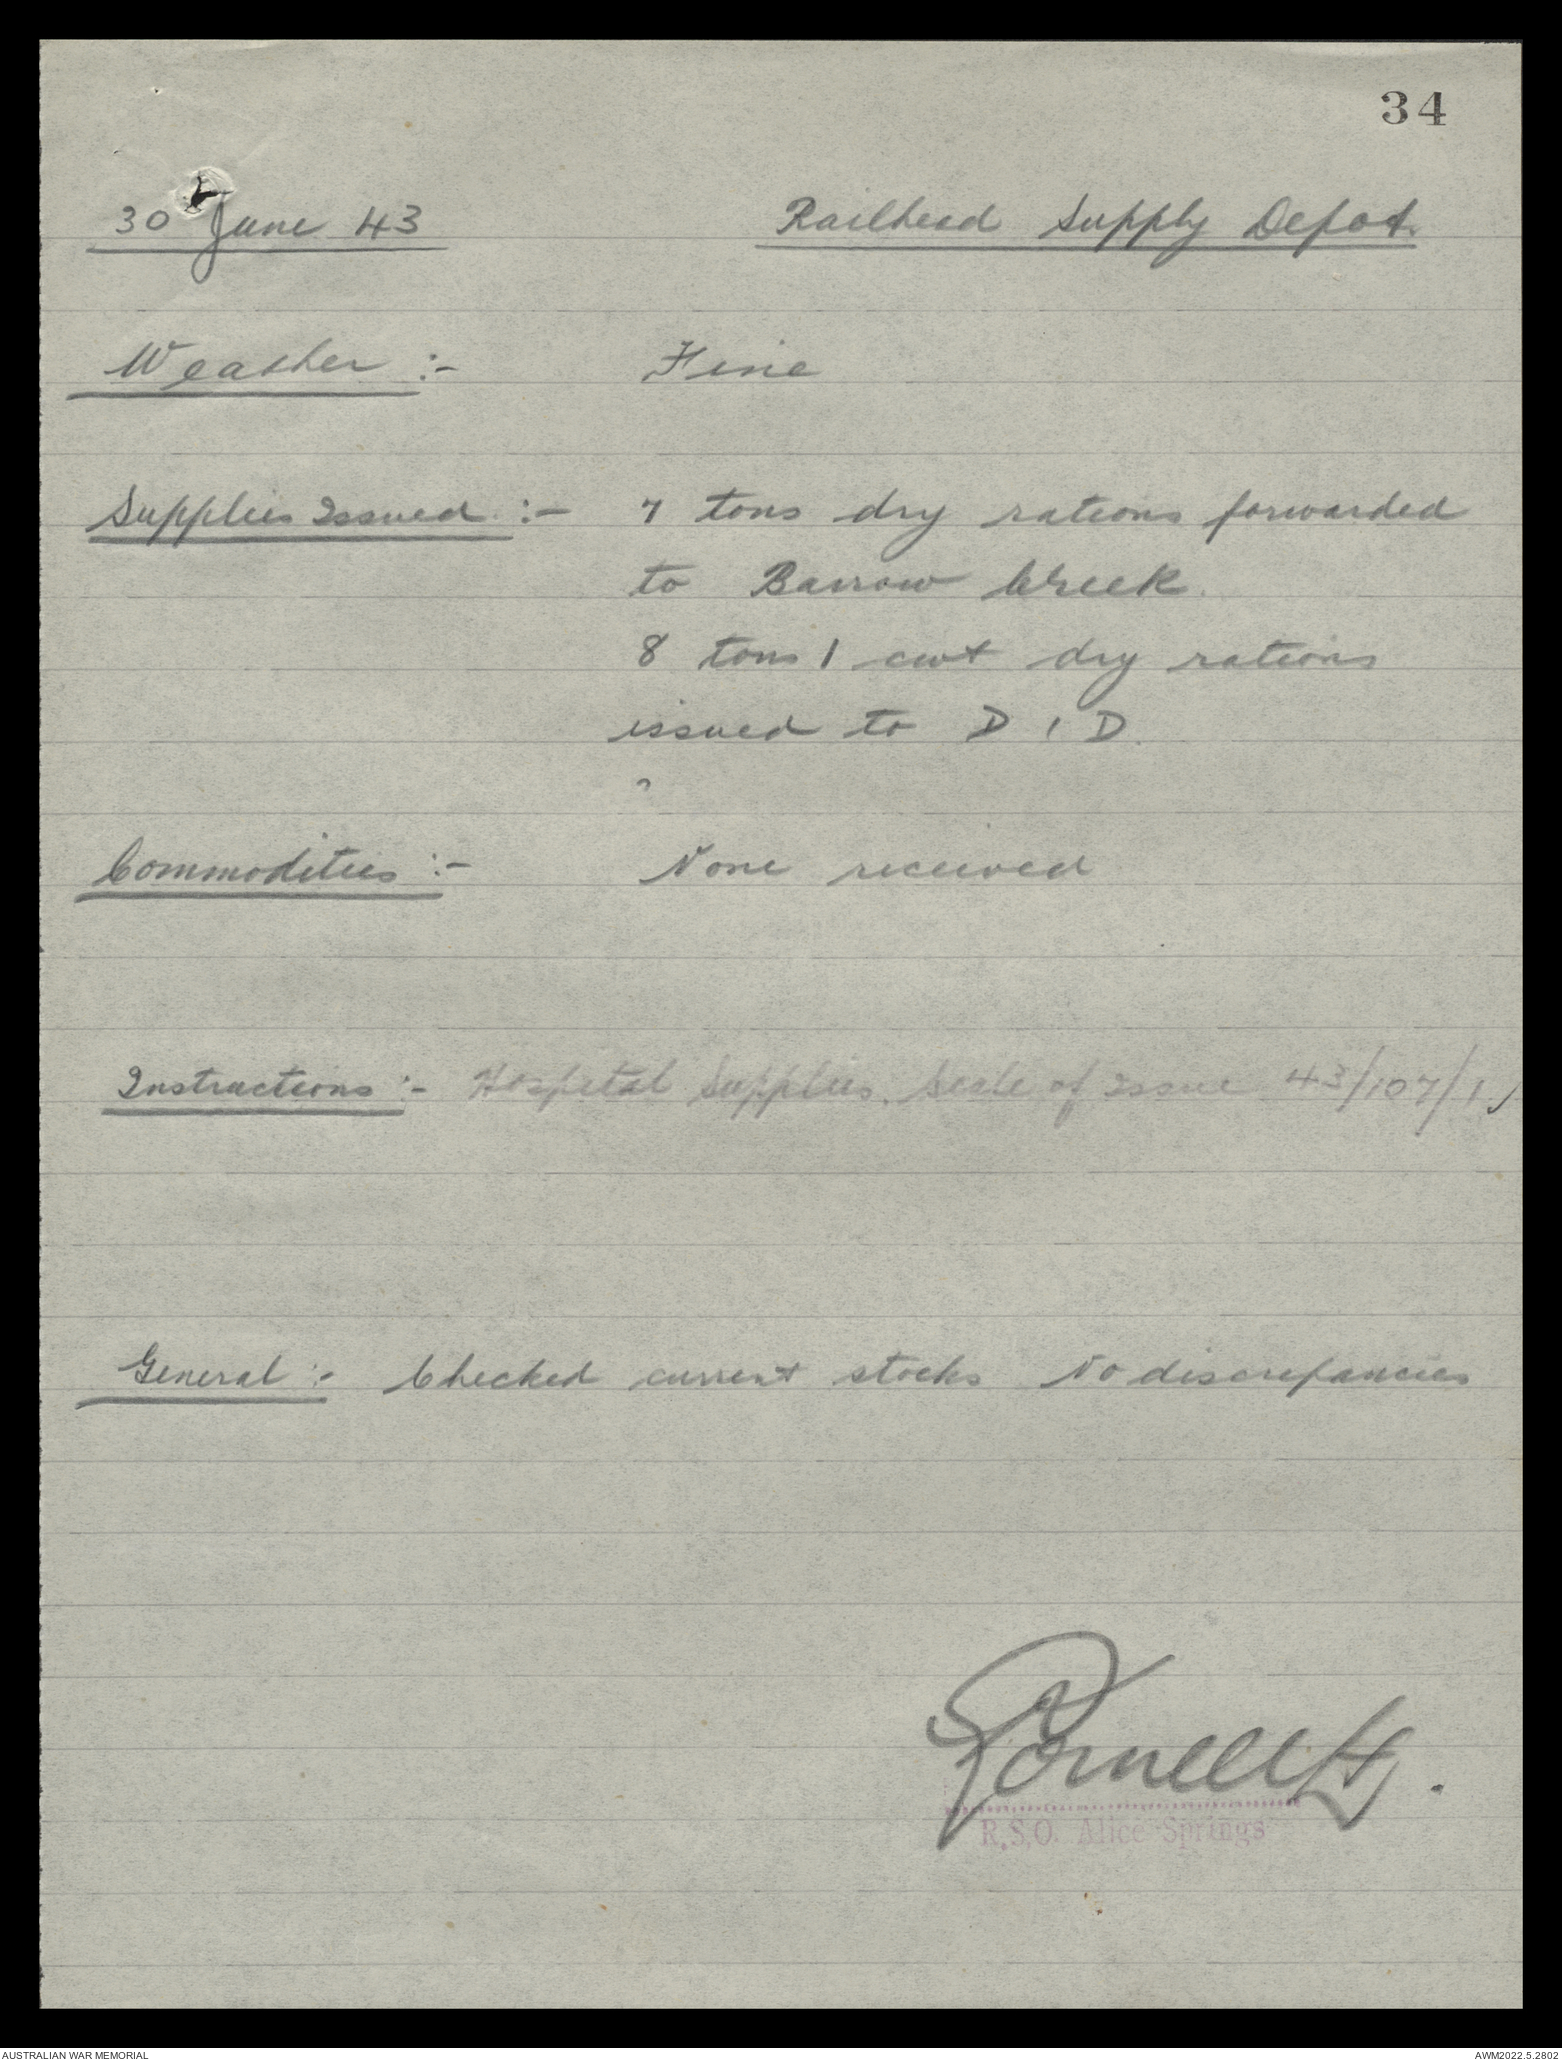 34
30 June 43 Railhead Supply Depot.
Weather :- Fine
Supplies Issued :- 7 tons dry rations forwarded
to Barrow Creek.
8 tons 1 cwt dry rations
issued to D I D.
Commodities :- None received
Instructions :- Hospital Supplies. Scale of Issue 43/107/1
General :- Checked current stocks No discrepancies
R.S.O. Alice Springs
AUSTRALIAN WAR MEMORIAL AWM2022.5.2802